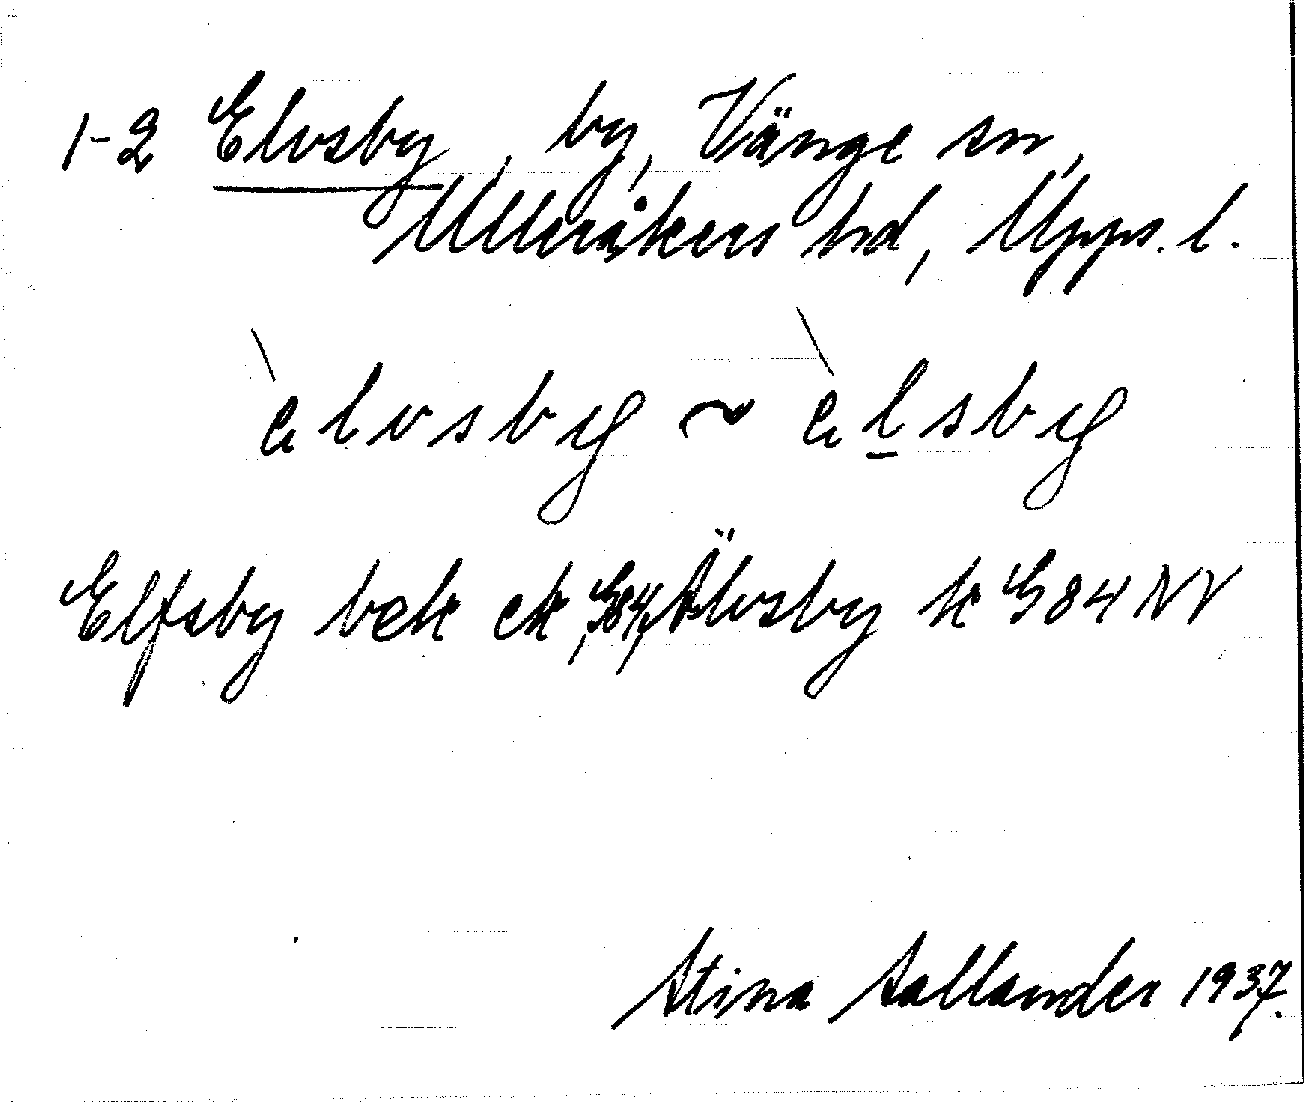 1-2 Elvsby, by, Vänge sn,
Ulleråkers hd, Upps. l.
èlvsby ~ èlsby
Elfsby bek ek, G84, Älvsby k G84 NV
Stina Sallander 1937.